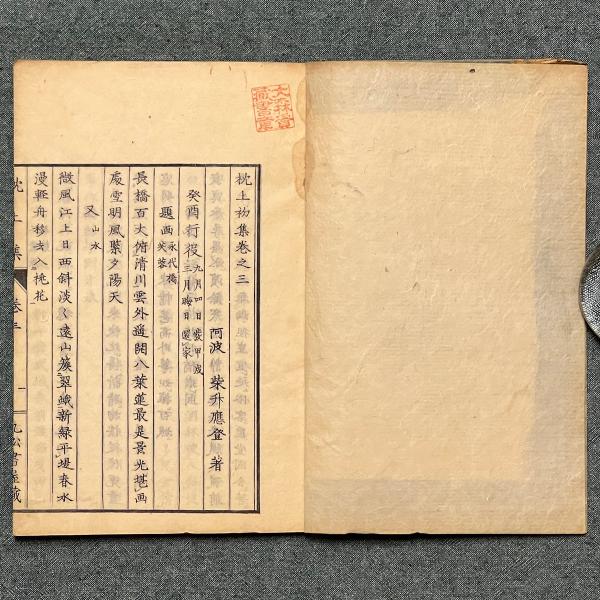 枕上初集卷之三
阿波 柴升應登 著
癸酉行役 九月廿日發甲戌三月晦日還家
題画 永代橋芙蓉
長橋百丈俯清川雲外遙開八葉蓮最是景光堪画
處雪明風葉夕陽天
又 山水
微風江上日西斜淡々遠山簇翠蛾新綠平堤春水
漫輕舟移去入桃花
枕上集 卷三 一